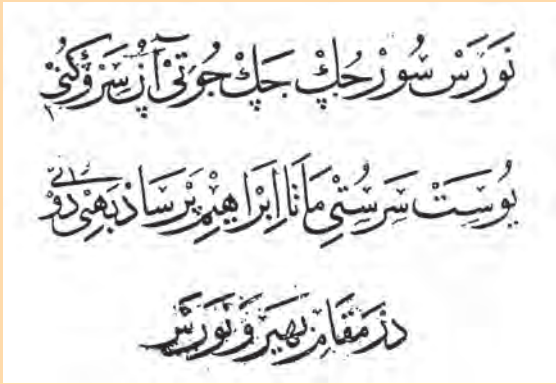 نَورَسْ سُورْ جُكْ جَكْ جُوتِيْ آنْ سَرْوْكُنِيْ
يُوسَتْ سَرَسُتِيْ مَاتَا اِبْرَاهِيْمْ پَرَسَادْ بَهَئِيْ دُونِي
دَرْ مَقَامِ بَهيَرَوْ نَورَسْ